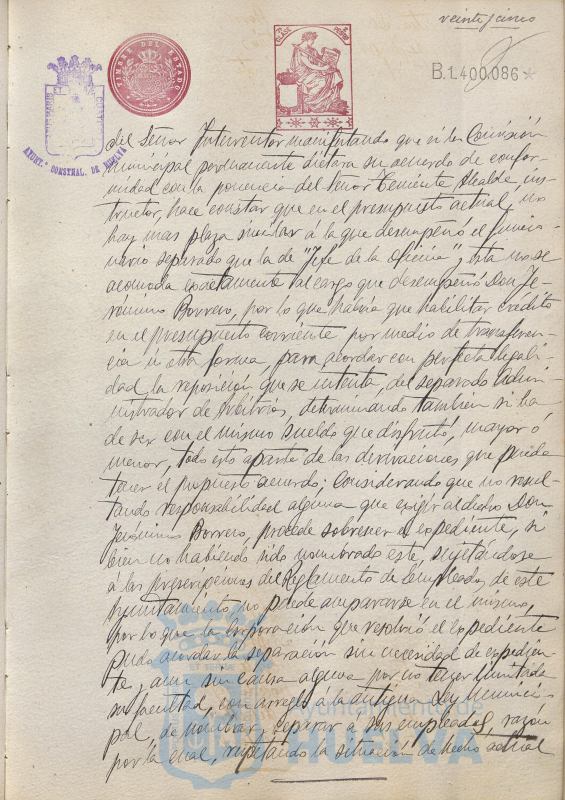 veinticinco
B.1.400.086*
TIMBRE DEL ESTADO
AYUNT.º CONSTNAL. DE HUELVA
del Señor Interventor manifestando que si la Comisión
municipal permanente dictara su acuerdo de confor-
midad con la ponencia del Señor Teniente Alcalde ins-
tructor, hace constar que en el presupuesto actual, no
hay mas plaza similar á la que desempeñó el funcio-
nario separado que la de "Jefe de la Oficina", y esta no se
acomoda exactamente al cargo que desempeñó Don Je-
rónimo Borrero, por lo que habría que habilitar crédito
en el presupuesto corriente por medio de transferen-
cia ú otra forma para acordar con perfecta legali-
dad la reposición que se intenta, del separado Admi-
nistrador de Arbitrios, determinando tambien si ha
de ser con el mismo sueldo que disfrutó, mayor ó
menor, todo esto aparte de las derivaciones que pueda
tener el propuesto acuerdo: Considerando que no resul-
tando responsabilidad alguna que exigir al dicho Don
Jerónimo Borrero, procede sobreseer el expediente, si
bien no habiendo sido nombrado este, sujetándose
á las prescripciones del Reglamento de Empleados de este
Ayuntamiento, no puede ampararse en el mismo,
por lo que la Corporación que resolvió el expediente
pudo acordar la separación sin necesidad de expedien-
te y aun sin causa alguna por no tener limitada
su facultad, con arreglo á la antigua Ley Munici-
pal, de nombrar y separar á sus empleados, razón
por la cual, respetando la situación de hecho actual
Ayuntamiento de
HUELVA